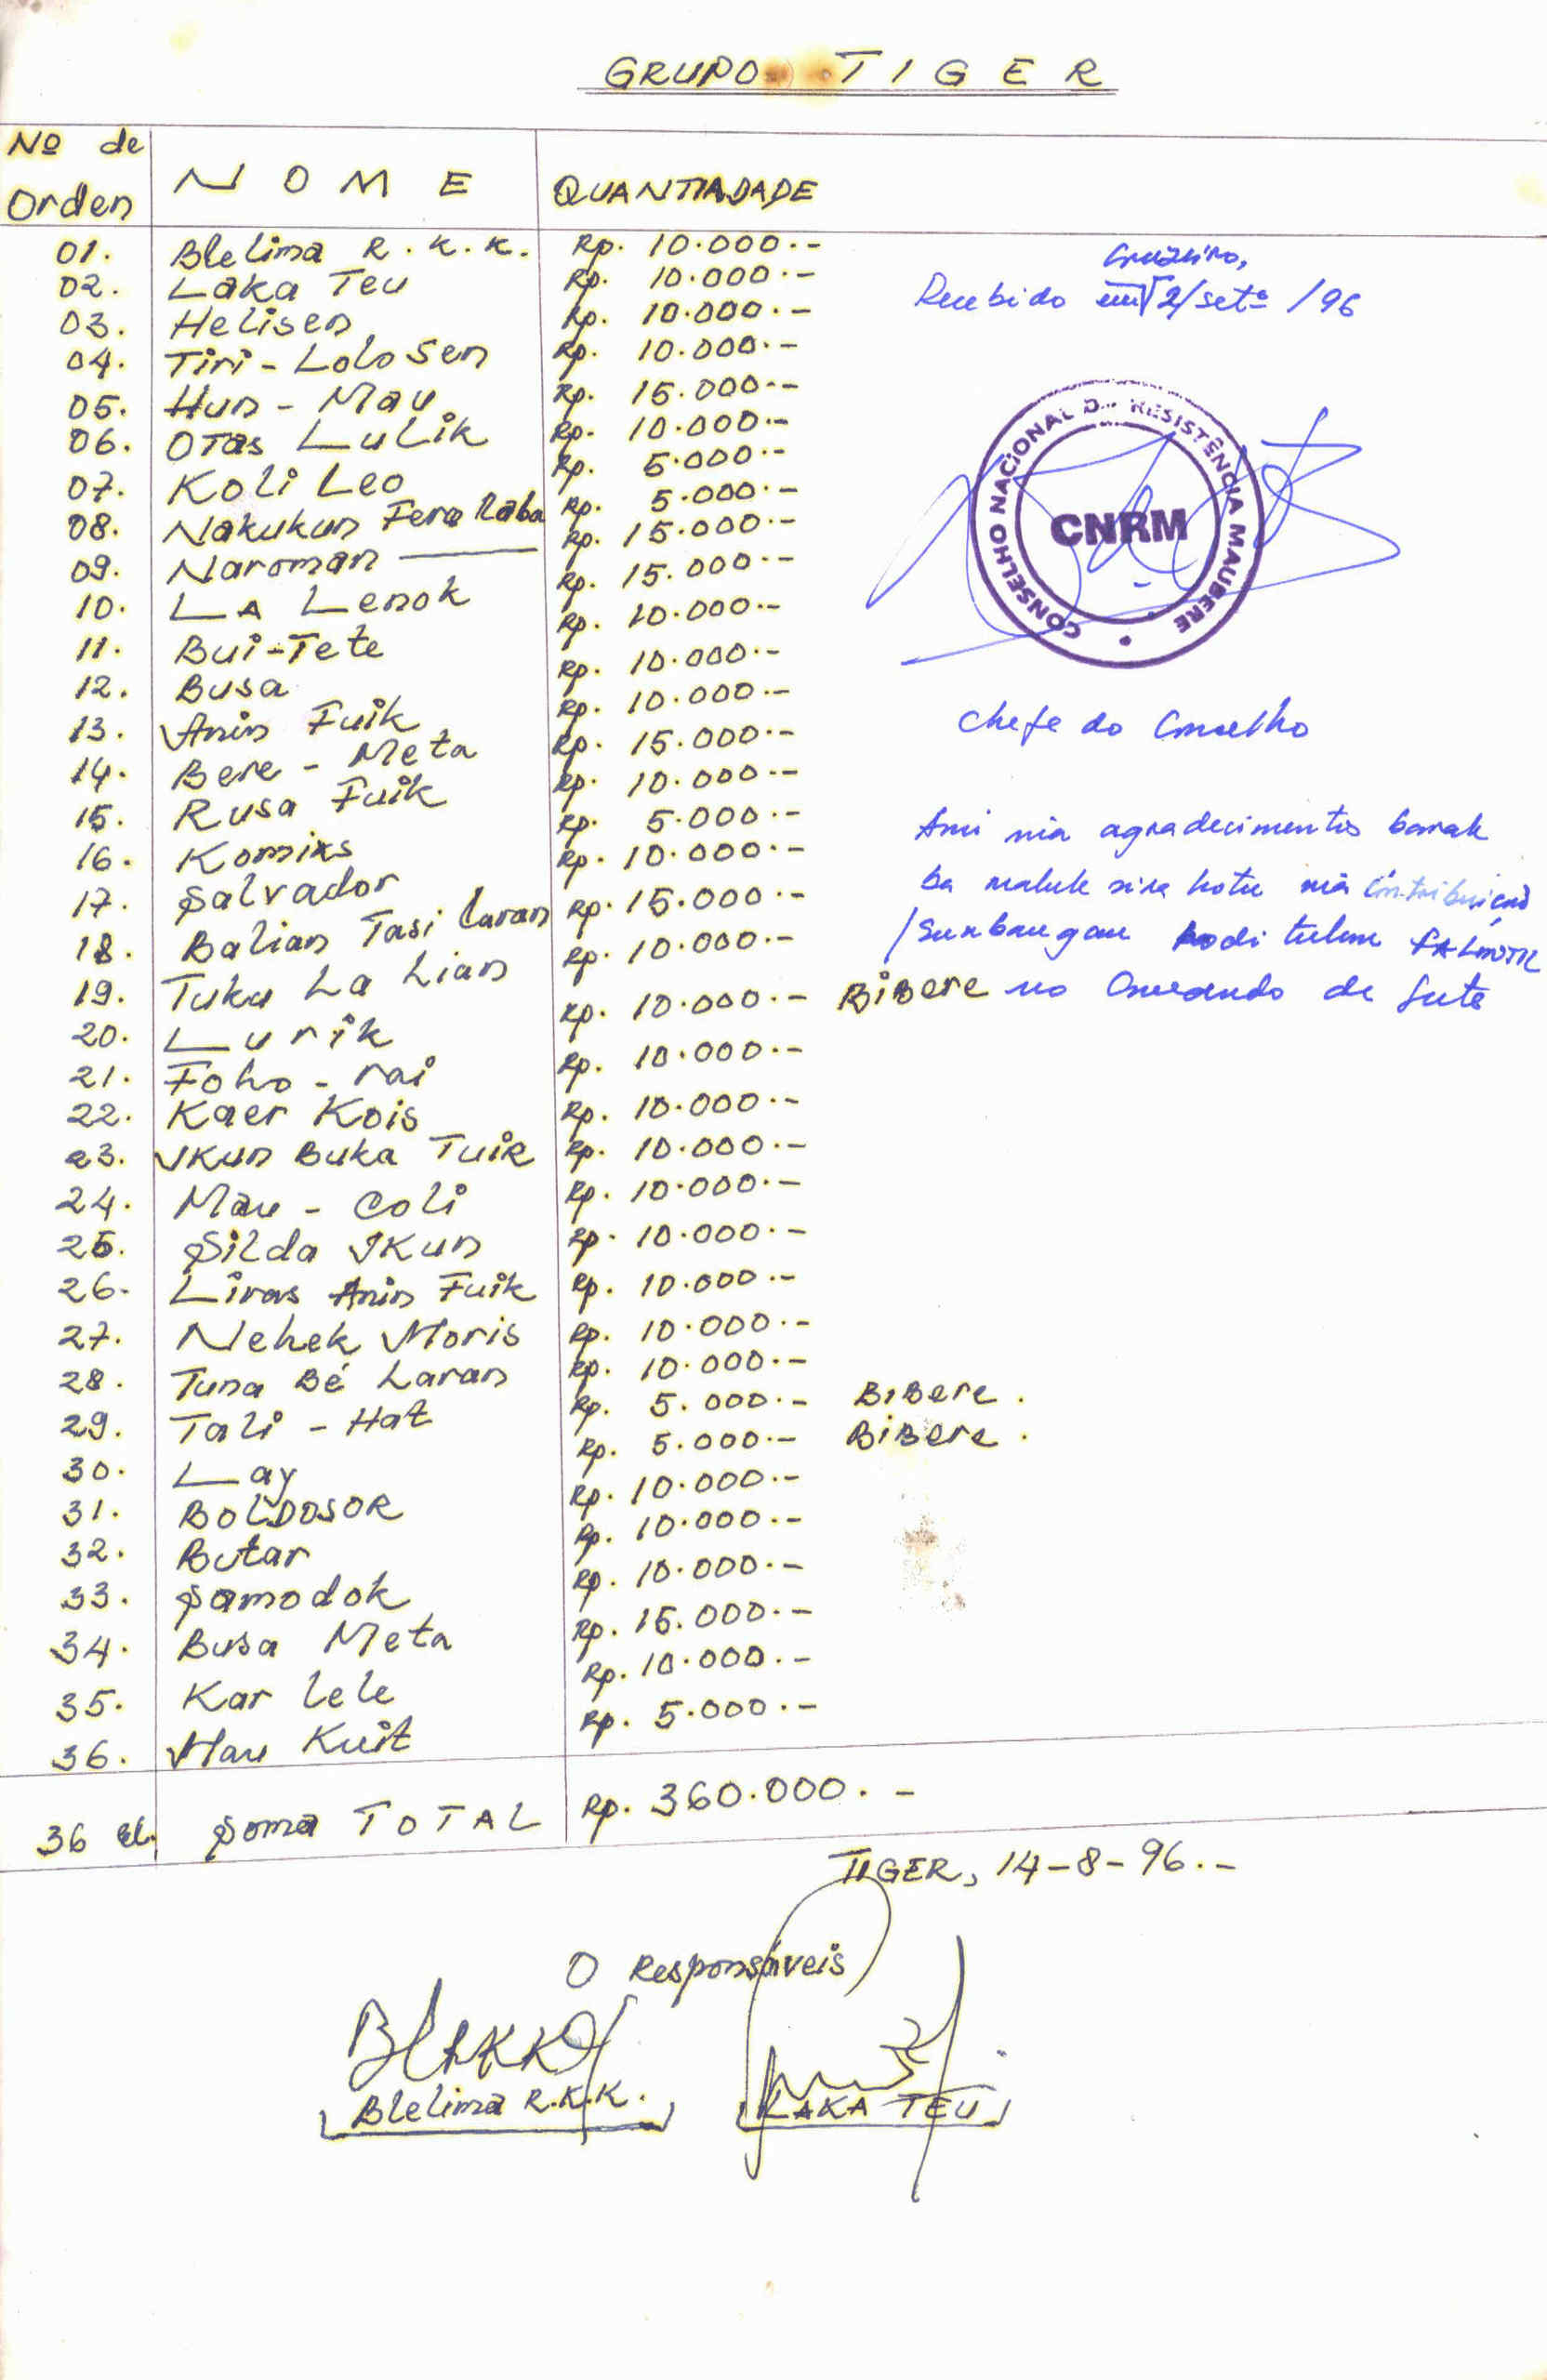 GRUPO TIGER
Nº de Orden NOME QUANTIADADE
01. Blelima R.K.K. Rp. 10.000.-
02. Laka Teu Rp. 10.000.-
03. Helisen Rp. 10.000.-
04. Tiri - Lolo Sen Rp. 10.000.-
05. Hun - Mau Rp. 15.000.-
06. Otas Lulik Rp. 10.000.-
07. Koli Leo Rp. 5.000.-
08. Nakukun Fera Raba Rp. 5.000.-
09. Naroman Rp. 15.000.-
10. La Lenok Rp. 15.000.-
11. Bui-Tete Rp. 10.000.-
12. Busa Rp. 10.000.-
13. Anin Fuik Rp. 10.000.-
14. Bere - Meta Rp. 15.000.-
15. Rusa Fuik Rp. 10.000.-
16. Komixs Rp. 5.000.-
17. Salvador Rp. 10.000.-
18. Balian Tasi laran Rp. 15.000.-
19. Tuku La Lian Rp. 10.000.-
20. Lurik Rp. 10.000.- Bibere
21. Foho - rai Rp. 10.000.-
22. Kaer Kois Rp. 10.000.-
23. Ikun Buka Tuir Rp. 10.000.-
24. Mau - Coli Rp. 10.000.-
25. Silda Ikun Rp. 10.000.-
26. Liras Anin Fuik Rp. 10.000.-
27. Nehek Moris Rp. 10.000.-
28. Tuna Bé Laran Rp. 10.000.-
29. Tali - Hat Rp. 5.000.- Bibere.
30. Lay Rp. 5.000.- Bibere.
31. Boldosor Rp. 10.000.-
32. Butar Rp. 10.000.-
33. Samodok Rp. 10.000.-
34. Busa Meta Rp. 15.000.-
35. Kar lele Rp. 10.000.-
36. Mau Kuit Rp. 5.000.-
36 el. Soma TOTAL Rp. 360.000.-
Cruzeiro,
Recebido 2/setº/96
CONSELHO NACIONAL DA RESISTÊNCIA MAUBERE
CNRM
Chefe do Conselho
Ami nia agradecimentos barak
ba maluk sira hotu nia contribuição
/Sunbangan hodi tulun FALINTIL
no Comando da Luta
TIGER, 14-8-96.-
O Responsáveis
Blelima R.K.K.
LAKA TEU